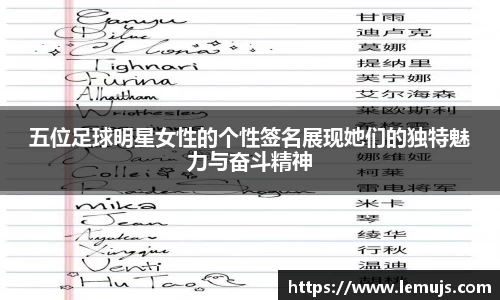 Ganyu 甘雨
Diluc 迪卢克
Mona 莫娜
Tighnari 提纳里
Furina 芙宁娜
Alhaitham 艾尔海森
Wriothesley 莱欧斯利
五位足球明星女性的个性签名展现她们的独特魅
力与奋斗精神
娜维娅
Collei 柯莱
Raiden Shogun 雷电将军
mika 米卡
Jean 琴
绫华
Xingqiu 行秋
Venti 温迪
Hu Tao
https://www.lemujs.com